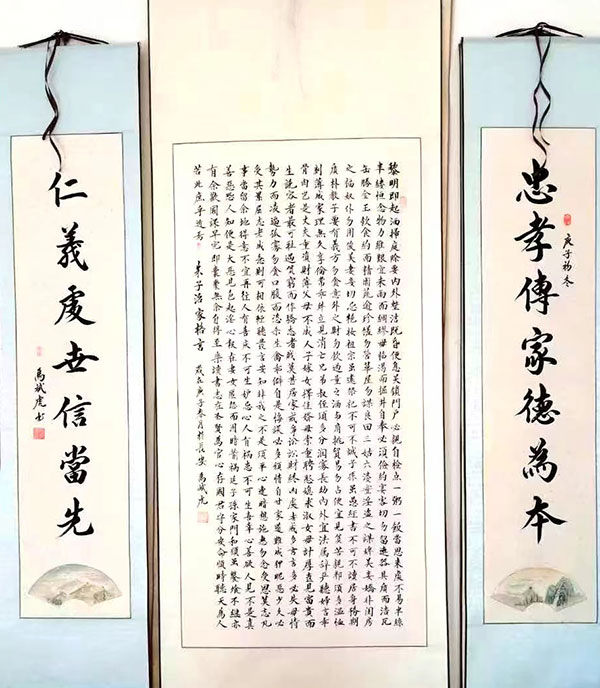 忠孝傳家德為本
庚子初冬
黎明即起洒掃庭除要內外整潔既昏便息关鎖門户必親自檢点一粥一飯當思來處不易半絲
半縷恒念物力維艱宜未雨而綢繆毋臨渴而掘井自奉必須儉約宴客切勿留連器具質而洁瓦
缶勝金玉飲食約而精園蔬愈珍饈勿營華屋勿謀良田三姑六婆實淫盗之謀婢美妾嬌非閨房
之福奴仆勿用俊美妻妾切忌艷妝祖宗雖遠祭祀不可不誠子孫雖愚經書不可不讀居身務期
质朴教子要有義方勿貪意外之財勿飲過量之酒与肩挑貿易勿占便宜見貧苦親鄰須多溫恤
刻薄成家理無久享倫常乖舛立見消亡兄弟叔侄須多分潤寡長幼內外宜法属辞严聽婦言乖
骨肉豈是丈夫重資財薄父母不成人子嫁女擇佳婿毋索重聘娶媳求淑女毋計厚奩見富貴而
生諂容者最可恥遇貧窮而作驕态者賤莫甚居家戒争訟訟則終凶處世戒多言言多必失毋恃
勢力而凌逼孤寡勿貪口腹而恣杀生禽乖僻自是悔误必多頹惰自甘家道難成狎昵惡少久必
受其累屈志老成急則可相依輕聽發言安知非我之不是須平心遭暗想施惠無念受恩莫忘凡
事當留餘地得意不宜再往人有喜慶不可生妒忌心人有禍患不可生喜幸心善欲人見不是真
善惡恐人知便是大惡見色起淫心報在妻女匿怨而用暗箭禍延子孫家門和順雖饔飧不繼亦
有余歡國課早完即囊橐無余自得至樂讀書志在圣賢為官心存國君守分安命順時聽天為人
若此庶乎近焉 朱子治家格言 歲在庚子春月於長安 馬斌虎
仁義處世信當先
馬斌虎书